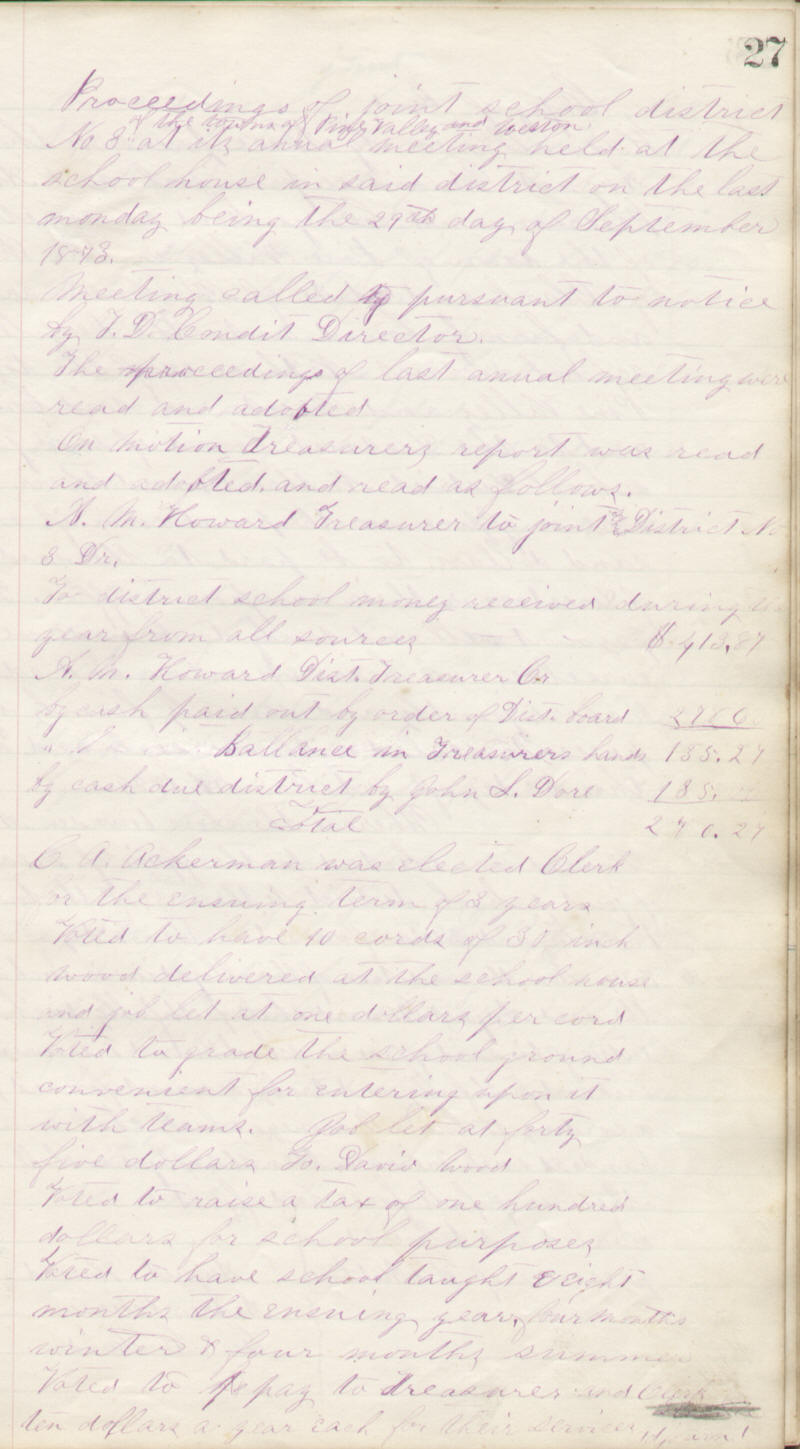 27
Proceedings of joint school district
of the towns of Pine Valley and Weston
No 8 at its anual meeting held at the
school house in said district on the last
monday being the 29th day of September
1873.
Meeting called pursuant to notice
by T. D. Condit Director.
The proceedings of last anual meeting were
read and adopted
On motion Treasurers report was read
and adopted and read as follows.
A. M. Howard Treasurer to joint District No
8 Dr.
To district school money received during the
year from all sources 413.87
A. M. Howard Dist. Treasurer Cr
by cash paid out by order of Dist. board
" Ballance in Treasurers hands 135.27
by cash due district by John S. Dore 135.
Total 270.27
C. A. Ackerman was elected Clerk
for the ensuing term of 3 years
Voted to have 10 cords of 30 inch
wood delivered at the school house
and job let at one dollars per cord
Voted to grade the school ground
convenient for entering upon it
with teams. Job let at forty
five dollars To. David Wood
Voted to raise a tax of one hundred
dollars for school purposes
Voted to have school taught eight
months the ensuing year, four months
winter & four months summer
Voted to pay to Treasurer and Clerk
ten dollars a year each for their services